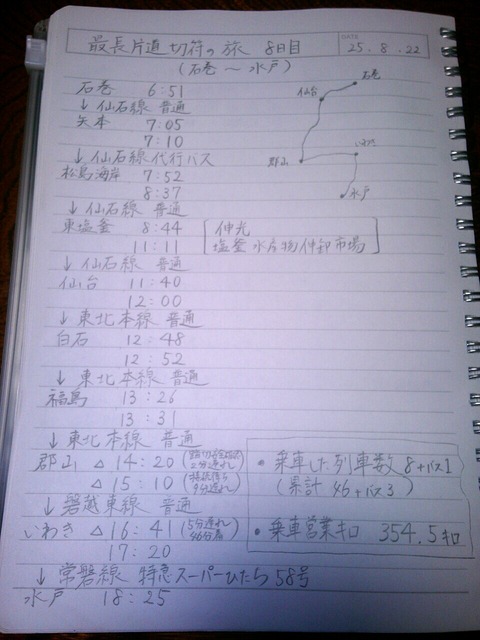 最長片道切符の旅 8日目
DATE 25.8.22
(石巻～水戸)
石巻 6:51
↓仙石線 普通
矢本 7:05
7:10
↓仙石線代行バス
松島海岸 7:52
8:37
↓仙石線 普通
東塩釜 8:44
11:11
塩釜水産物仲卸市場
↓仙石線 普通
仙台 11:40
12:00
↓東北本線 普通
白石 12:48
12:52
↓東北本線 普通
福島 13:26
13:31
↓東北本線 普通
郡山 △14:20 2分遅れ
△15:10 (接続待ち 4分遅れ)
↓磐越東線 普通
いわき △16:41 (5分遅れ 46分着)
17:20
↓常磐線 特急スーパーひたち58号
水戸 18:25
石巻
仙台
郡山
いわき
水戸
・乗車した列車数 8+バス1
(累計 46+バス3)
・乗車営業キロ 354.5キロ